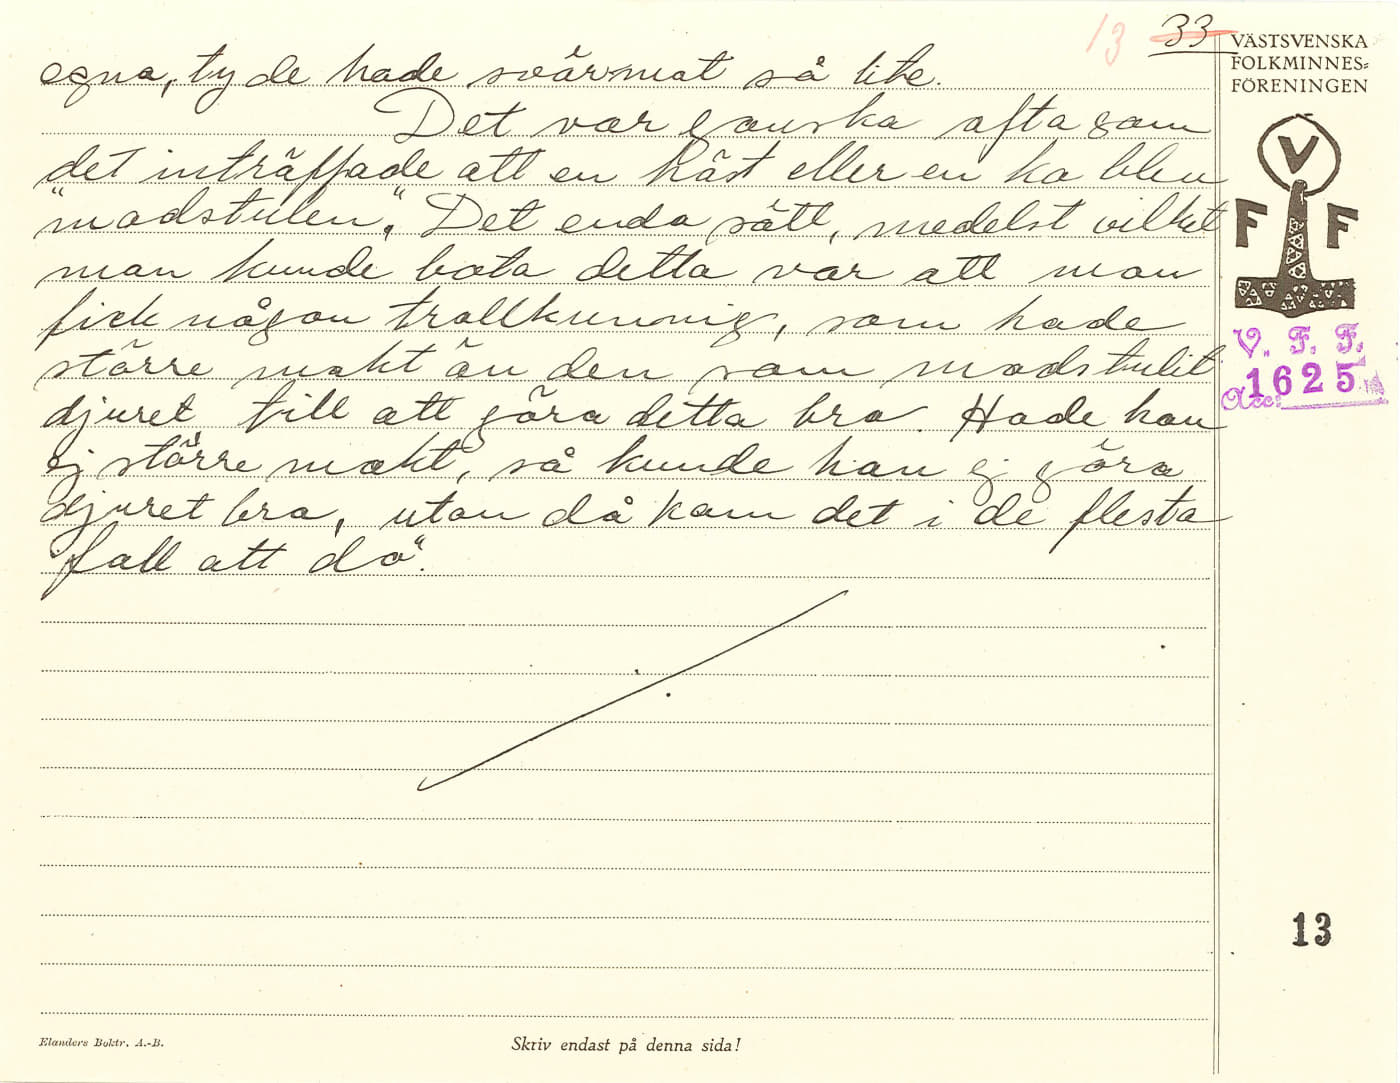 13 33
VÄSTSVENSKA
FOLKMINNES=
FÖRENINGEN
egna, ty de hade svärmat så lite.
Det var ganska ofta som
det inträffade att en häst eller en ko blev
"modstulen". Det enda sätt, medelst vilket
man kunde bota detta var att man
fick någon trollkunnig, som hade
större makt än den som modstulit
djuret till att göra detta bra. Hade han
ej större makt, så kunde han ej göra
djuret bra, utan då kom det i de flesta
fall att dö".
V
F F
V. F. F.
Acc: 1625
13
Elanders Boktr. A.-B.
Skriv endast på denna sida!